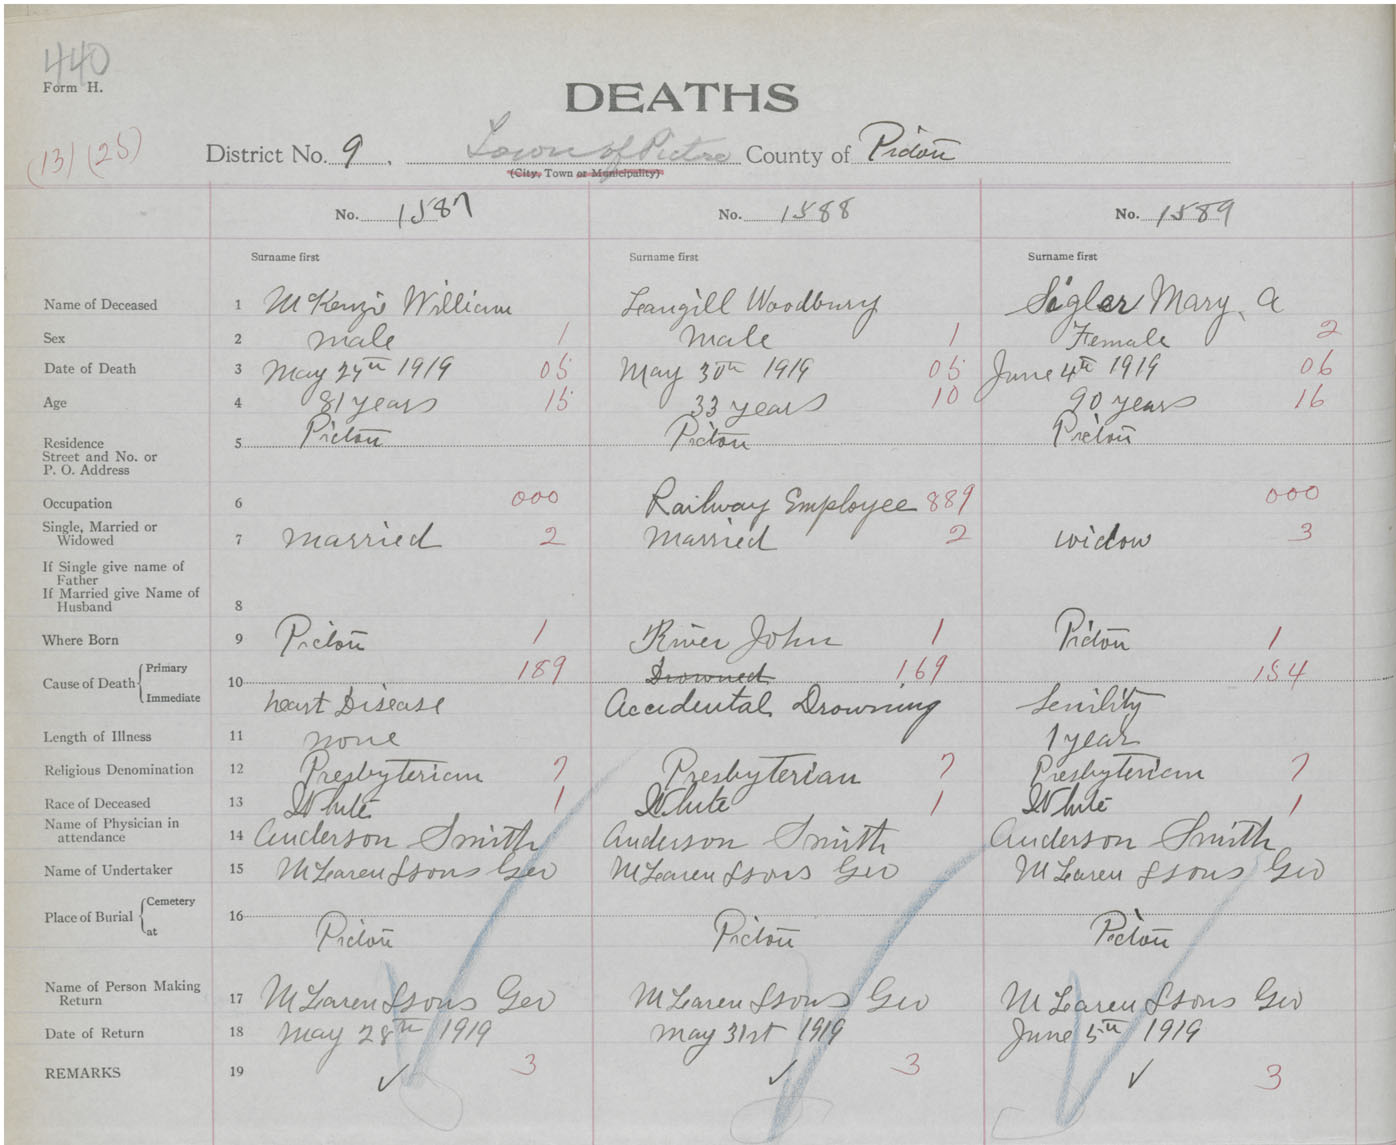 440
Form H.
DEATHS
(13) (25)
District No. 9, Town of Pictou County of Pictou
(City, Town or Municipality)
No. 1587 No. 1588 No. 1589
Surname first Surname first Surname first
Name of Deceased 1 McKenzie William Langill Woodbury Sigler Mary A
Sex 2 male 1 male 1 Female 2
Date of Death 3 May 27th 1919 05 May 30th 1919 05 June 4th 1919 06
Age 4 81 years 15 33 years 10 90 years 16
Residence
Street and No. or
P. O. Address 5 Pictou Pictou Pictou
Occupation 6 000 Railway Employee 889 000
Single, Married or
Widowed 7 married 2 married 2 widow 3
If Single give name of
Father
If Married give Name of
Husband 8
Where Born 9 Pictou 1 River John 1 Pictou 1
Cause of Death { Primary 10 189 Drowned 169 154
Immediate heart Disease Accidental Drowning Senility
Length of Illness 11 none 1 year
Religious Denomination 12 Presbyterian 7 Presbyterian 7 Presbyterian 7
Race of Deceased 13 White 1 White 1 White 1
Name of Physician in
attendance 14 Anderson Smith Anderson Smith Anderson Smith
Name of Undertaker 15 McLaren & sons Geo McLaren & sons Geo McLaren & sons Geo
Place of Burial { Cemetery 16
at Pictou Pictou Pictou
Name of Person Making
Return 17 McLaren & sons Geo McLaren & sons Geo McLaren & sons Geo
Date of Return 18 May 28th 1919 May 31st 1919 June 5th 1919
REMARKS 19 ✓ 3 ✓ 3 ✓ 3